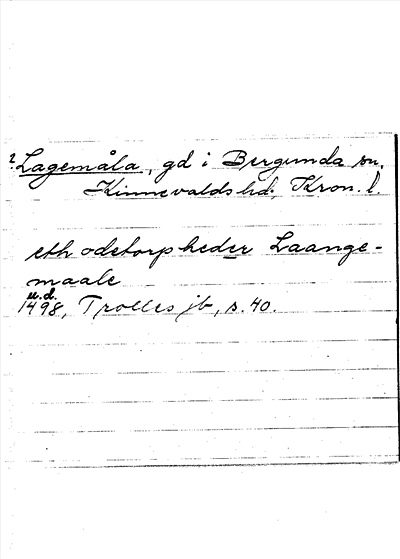 ? Lagemåla, gd i Bergunda sn.
Kinnevalds hd. Kron. l.
eth odetorp heder Laange-
maale
u.d.
1498, Trolles jb, s. 40.